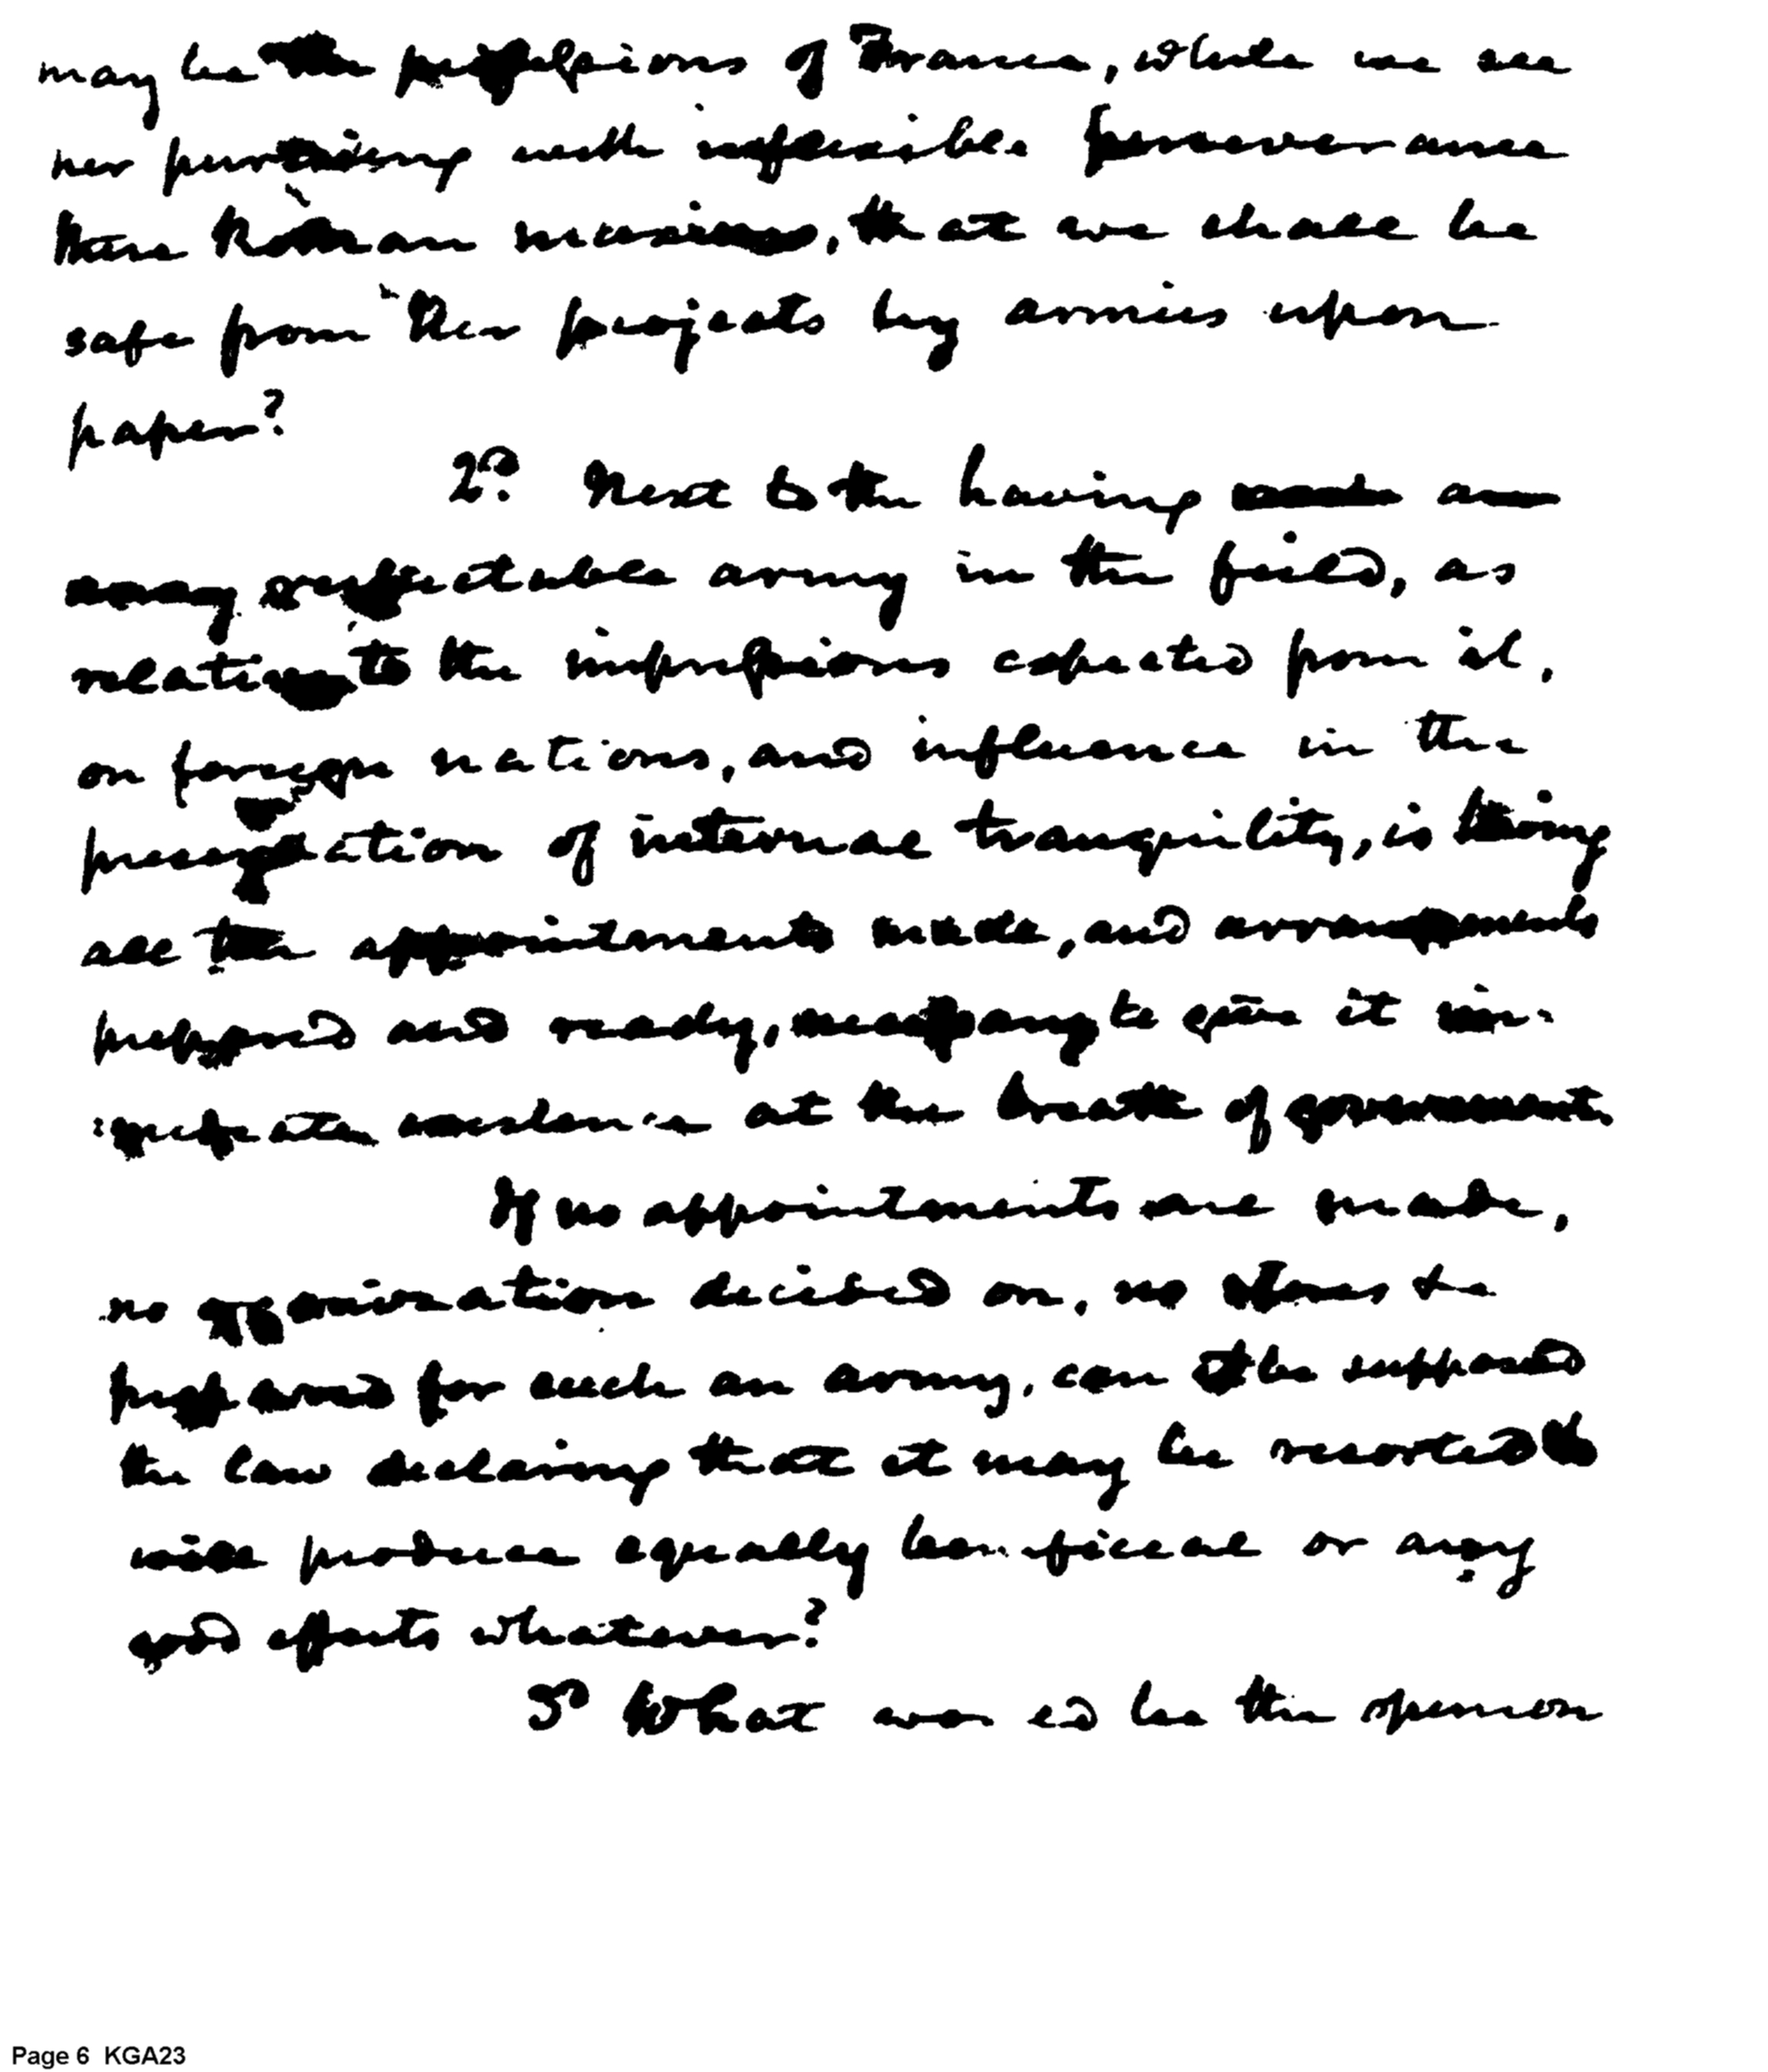 may be the professions of France, while we see
her pursuing with inflexible perseverance
her Roman maxims, that we shall be
safe from her projects by armies upon
paper?
2d. Next to the having an
respectable army in the field, as
relative to the impressions expected from it,
on foreign nations, and influence in the
preservation of internal tranquility, is having
all the appointments made, and arrangements
prepared and ready, necessary to give it im-
:mediate existence at the breath of government.
If no appointments are made,
no organization decided on, no stores be
prepared for such an army, can it be supposed
the law declaring that it may be resorted to
will produce equally beneficial or any
good effects whatever?
3d What would be the opinion
Page 6 KGA23